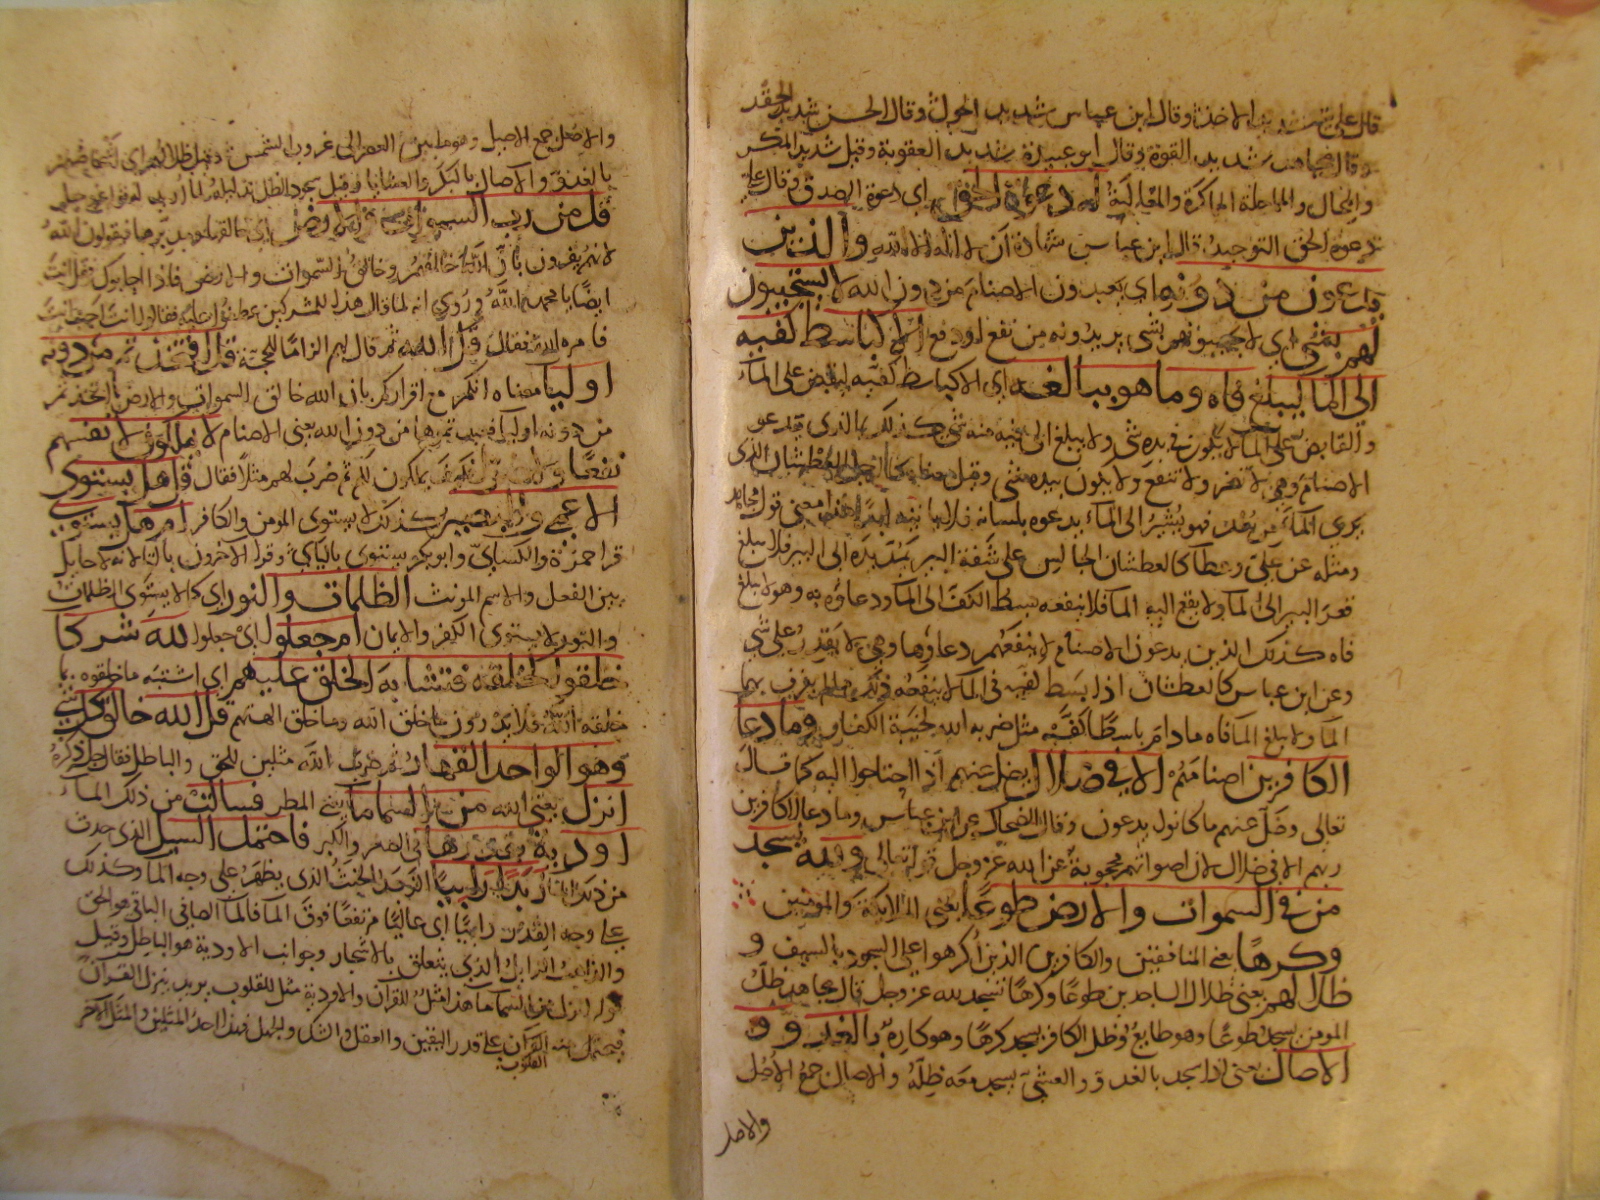 قال علي شديد الاخذ وقال ابن عباس شديد الحول وقال الحسن شديد الحقد
وقال مجاهد شديد القوة وقال ابو عبيدة شديد العقوبة وقيل شديد المكر
والمحال والمماحلة المماكرة والمغالبة له دعوة الحق اي دعوة الصدق وقال علي
دعوة الحق التوحيد وقال ابن عباس شهادة ان لا اله الا الله والذين
يدعون من دونه اي يعبدون الاصنام من دون الله لا يستجيبون
لهم بشي اي لا يجيبونهم بشي يريدونه من نفع او دفع الا كباسط كفيه
الى الما ليبلغ فاه وما هو ببالغه اي الا كباسط كفيه ليقبض على الماء
والقابض على الماء لا يكون في يده شي ولا يبلغ الى فيه منه شي كذلك الذي يدعو
الاصنام وهي لا تضر ولا تنفع ولا يكون بيده شي وقيل معناه كالرجل العطشان الذي
يرى الماء من بعد فهو يشير الى الماء يدعوه بلسانه فلا ياتيه ابدا هذا معنى قول مجاهد
ومثله عن علي وعطا كالعطشان الجالس على شفة البير يمد يده الى البير فلا يبلغ
قعر البير الى الما ولا يرتفع اليه الما فلا ينفعه بسط الكف الى الما ودعاؤه به وهو لا يبلغ
فاه كذلك الذين يدعون الاصنام لا ينفعهم دعاوها وهي لا يقدر على شي
وعن ابن عباس كالعطشان اذا بسط كفيه في الما لا ينفعه ذلك ما لم يغرف بهما
الما ولا يبلغ الما فاه ما دام باسطا كفيه مثل ضربه الله لخيبة الكفار وما دعا
الكافرين اصنامهم الا في ضلال يضل عنهم اذا احتاجوا اليه كما قال
تعالى وضل عنهم ما كانوا يدعون وقال الضحاك عن ابن عباس وما دعا الكافرين
ربهم الا في ضلال لان اصواتهم محجوبة عن الله عز وجل قوله تعالى ولله يسجد
من في السموات والارض طوعا يعني الملائكة والمومنين
وكرها يعني المنافقين والكافرين الذين اكرهوا على السجود بالسيف و
ظلالهم يعني ظلال الساجدين طوعا وكرها تسجد لله عز وجل قال مجاهد ظل
المومن يسجد طوعا وهو طايع وظل الكافر يسجد كرها وهو كاره بالغدو و
الاصال يعني اذا سجد بالغدو والعشي يسجد معه ظله والاصال جمع الاصل
والاصل
والاصل جمع الاصيل وهو ما بين العصر الى غروب الشمس وقيل ظلالهم اي اشخاصهم
بالغدو والاصال بالبكر والعشايا وقيل سجود الظل تذليله لما اريد له قوله عز وجل
قل من رب السموات والارض اي خالقها ومدبرها فيقولون الله
لانهم يقرون بان الله خالقهم وخالق السموات والارض فاذا اجابوك فقل انت
ايضا يا محمد الله وروي انه لما قال هذا للمشركين عطفوا عليه فقالوا اجب انت
فامره الله فقال قل الله ثم قال لهم الزاما للحجة قل افتخذتم من دونه
اوليا معناه انكم مع اقراركم بان الله خالق السموات والارض اتخذتم
من دونه اوليا فعبدتموها من دون الله يعني الاصنام لا يملكون لانفسهم
نفعا ولا ضرا فكيف يملكون لكم ثم ضرب لهم مثلا فقال قل هل يستوي
الاعمى والبصير كذلك لا يستوي المومن والكافر ام هل يستوي
قرا حمزة والكسائي وابو بكر يستوي بالياي وقرا الاخرون بالتا لانه لا حايل
بين الفعل والاسم المونث الظلمات والنور اي كما لا يستوي الظلمات
والنور لا يستوي الكفر والايمان ام جعلوا اي جعلوا لله شركا
خلقوا كخلقه فتشابه الخلق عليهم اي اشتبه ما خلقوه بما
خلقه الله فلا يدرون ما خلق الله وما خلق الهتهم قل الله خالق كل شي
وهو الواحد القهار ثم ضرب الله مثلين للحق والباطل فقال جل ذكره
انزل يعني الله من السما ما يعني المطر فسالت من ذلك الماء
اودية بقدرها في الصغر والكبر فاحتمل السيل الذي حدث
من ذلك الما زبدا رابيا الزبد الخبث الذي يظهر على وجه الما وكذلك
على وجه القدر رابيا اي عاليا مرتفعا فوق الما فالما الصافي الباقي هو الحق
والذاهب الزايل الذي يتعلق بالاشجار وجوانب الاودية هو الباطل وقيل
قوله انزل من السما ما هذا مثل للقران والاودية مثل للقلوب يريد ينزل القران
فيحتمل منه القران على قدر اليقين والعقل والشك والجهل فهذا احد المثلين والمثل الاخر
القلوب